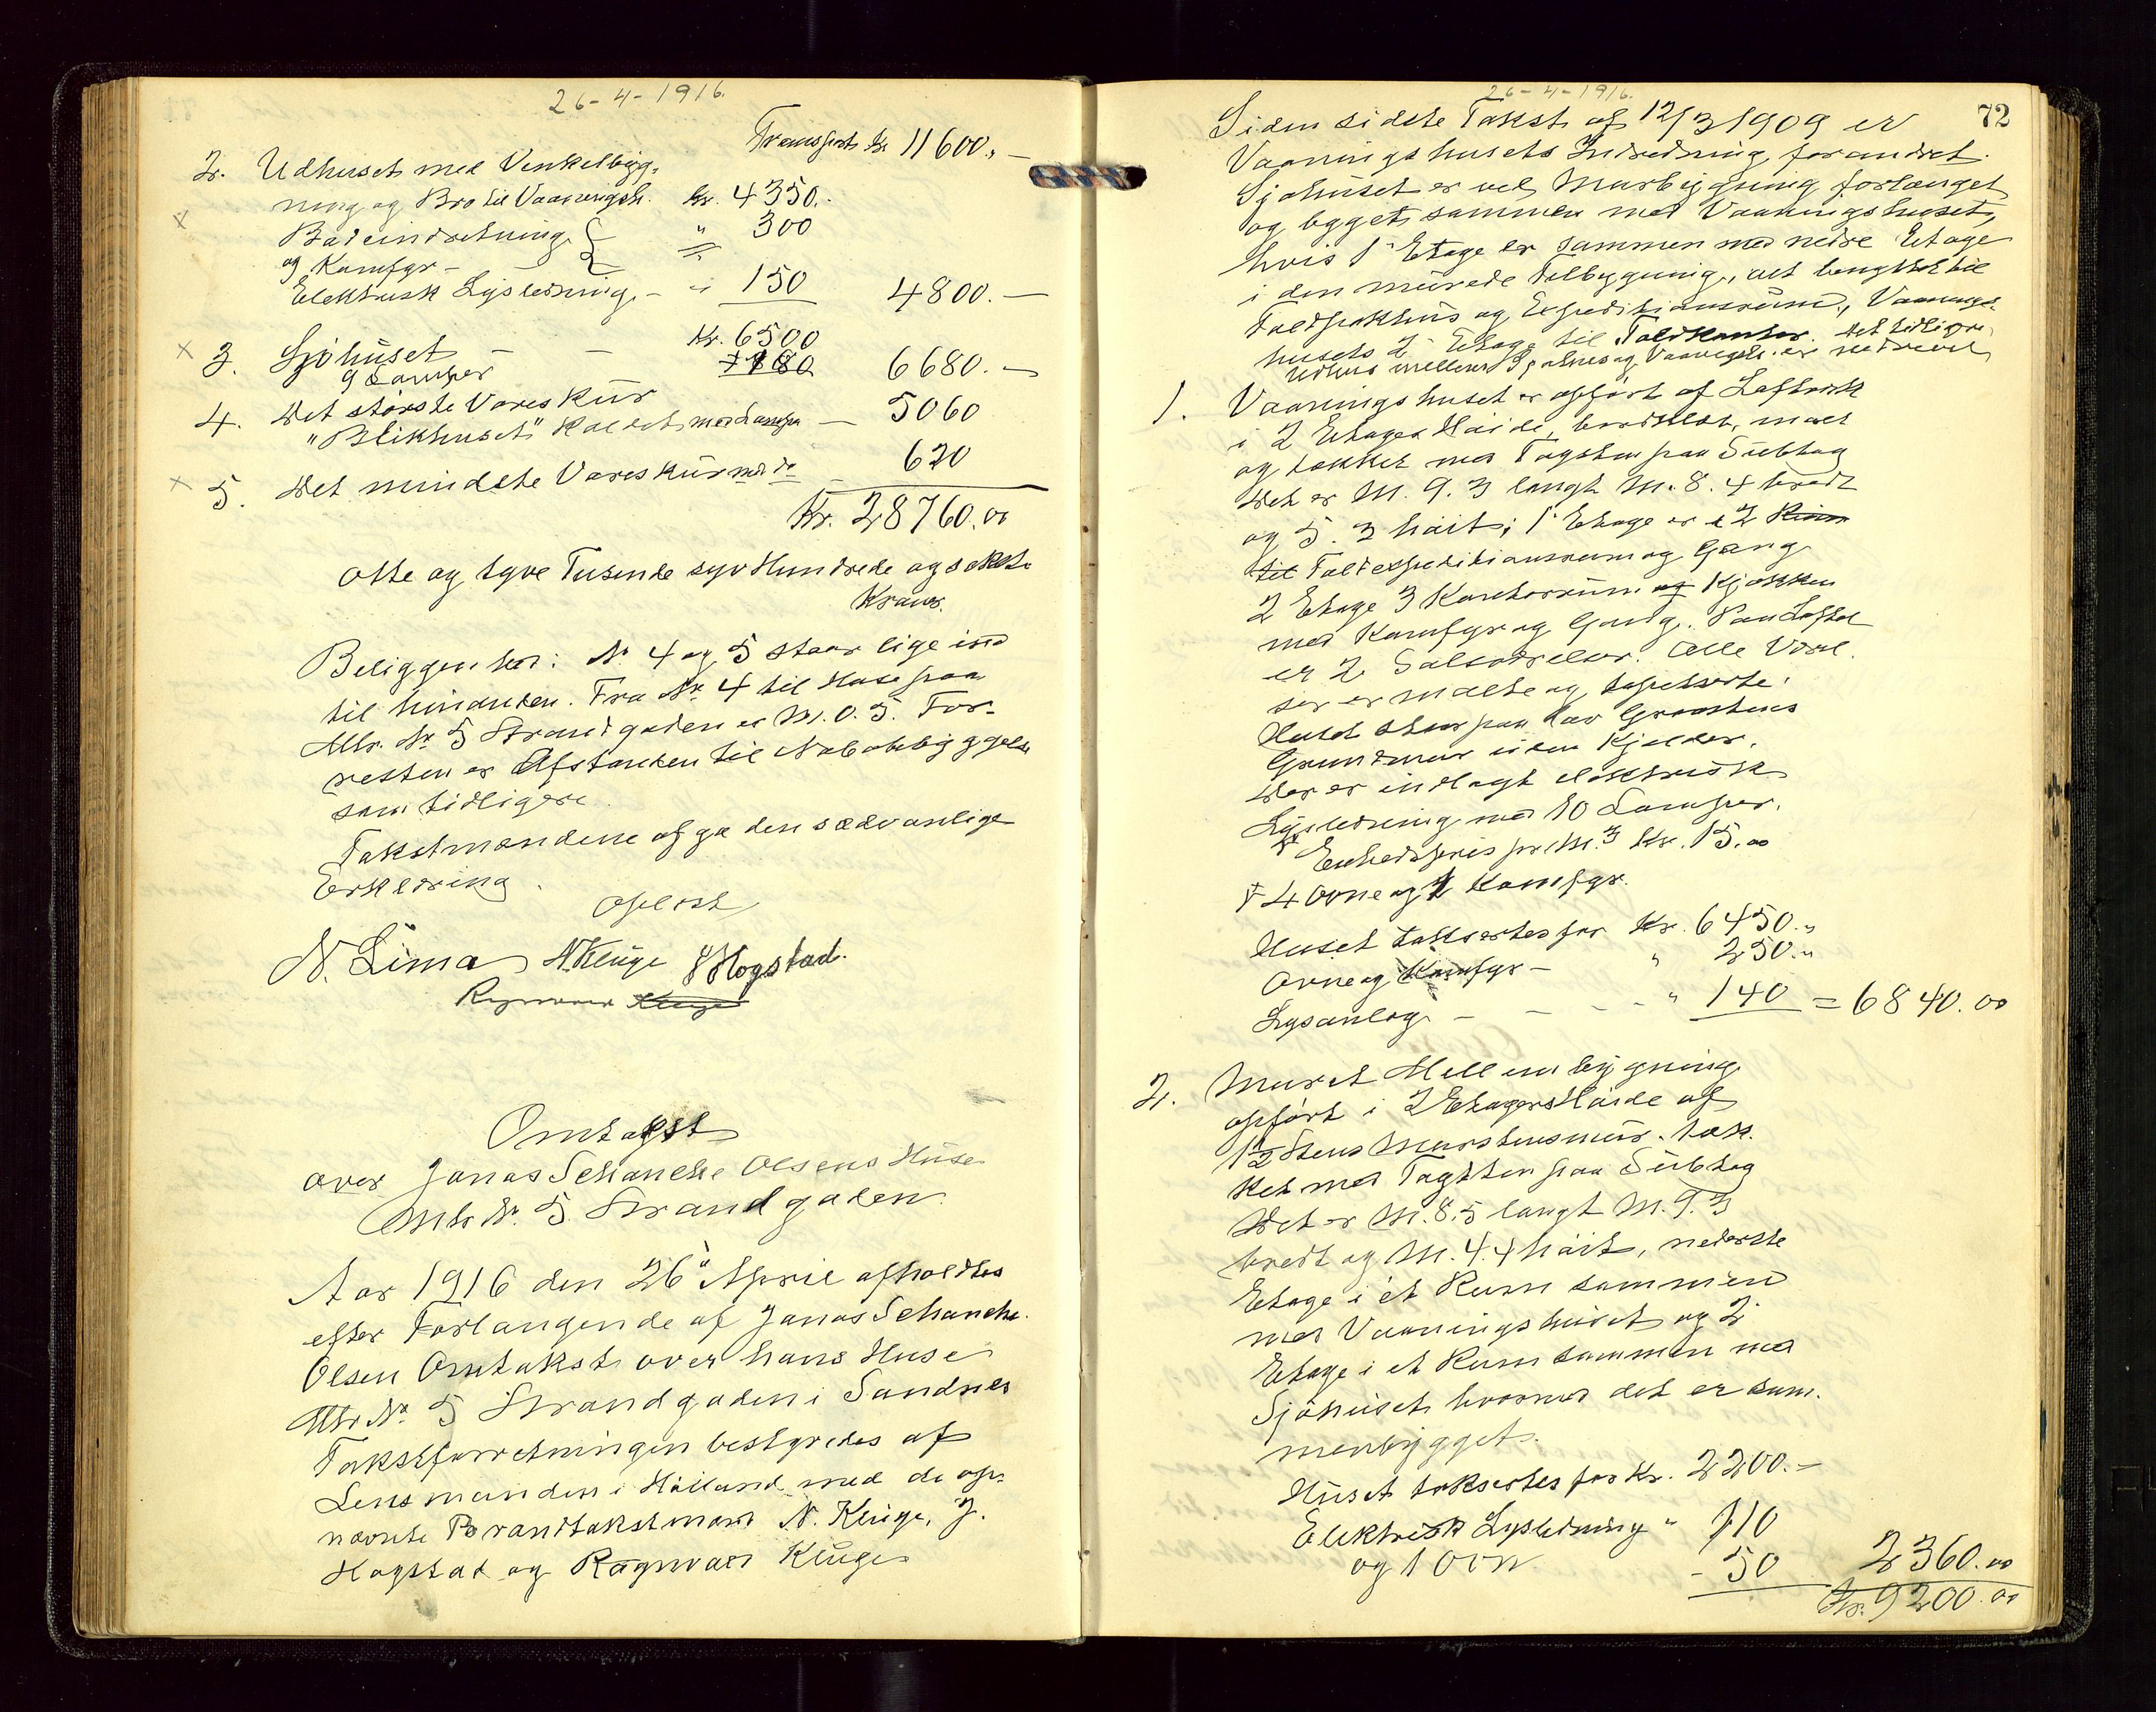 26-4-1916.
Transport kr 11600.-
2. Udhuset med Vinkelbyg-
ning og Bro til Vaaningsh. kr. 4350.-
Badeindretning " 300
og Komfyr -
Elektrisk Lysledning - " 150 4800.-
3. Sjøhuset - - Kr. 6500
9 Lamper 180 6680.-
4. Det største Vareskur
"Blikhuset" kaldet med Lamper - 5060
5. Det mindste Vareskur med do - 620
Kr. 28760.00
Otte og tyve Tusende syv Hundrede og seksti
Kroner.
Beliggenhed: No 4 og 5 staar lige ind
til hinanden. Fra No 4 til Huse paa
Mtr. No 5 Strandgaden er M. 0.5. For-
resten er Afstanden til Nabobebyggelse
som tidligere.
Takstmændene afga den sædvanlige
Erklæring.
Oplæst
N. Lima N. Kluge J Hogstad.
Ragnvald Kluge
Omtakst
over Jonas Schanche Olsens Huse
Mtr No. 5 Strandgaden.
Aar 1916 den 26de April afholdtes
efter Forlangende af Jonas Schanche
Olsen Omtakst over hans Huse
Mtr. No. 5 Strandgaden i Sandnes
Takstforretningen bestyredes af
Lensmanden i Höiland med de op-
nævnte Brandtakstmænd N. Kluge, J.
Hogstad og Ragnvald Kluge
26-4-1916.
72
Siden sidste Takst af 12/3 1909 er
Vaaningshusets Indredning forandret.
Sjøhuset er ved Murbygning forlænget
og bygget sammen med Vaaningshuset,
hvis 1ste Etage er sammen med nedre Etage
i den murede Tilbygning, alt benyttet til
Toldpakhus og Expeditionsrum, Vaanings-
husets 2den Etage til Toldkontor. Det tidligere
Udhus mellem Sjøhus og Vaaningsh. er nedrevet
1. Vaaningshuset er opført af Laftverk
i 2 Etagers Høide, bordklædt, malet
og tækket med Tagsten paa Subtag
Det er M. 9.3 langt M. 8.4 bredt
og 5.3 høit; 1ste Etage er i 2 Rum
til Toldexpeditionsrum og Gang
2 Etage 3 Kontorrum og Kjøkken
med Komfyr og Gang. Paa Loftet
er 2 Salsværelser. Alle Værel-
ser er malte og tapetserte.
Huset staar paa lav Graastens
Grundmur uden Kjelder.
Der er indlagt elektrisk
Lysledning med 10 Lamper.
Enhedspris pr. M.3 Kr. 15.00
4 Ovne og 1 Komfyr.
Huset taksertes for Kr. 6450.-
Ovne og Komfyr - " 250.-
Lysanlæg - - - " 140 = 6840.00
2. Muret Mellembygning
opført i 2 Etagers Høide af
1 1/2 Stens Murstensmur. tæk-
ket med Tagsten paa Subtag
Det er M. 8.5 langt M. 9.3
bredt og M. 4.4 høit, nederste
Etage i et Rum sammen
med Vaaningshuset og 2
Etage i et Rum sammen med
Sjøhuset hvormed det er sam-
menbygget.
Huset taksertes for Kr. 2200.-
Elektrisk Lysledning " 110
og 1 Ovn - 50 2360.00
Kr. 9200.00